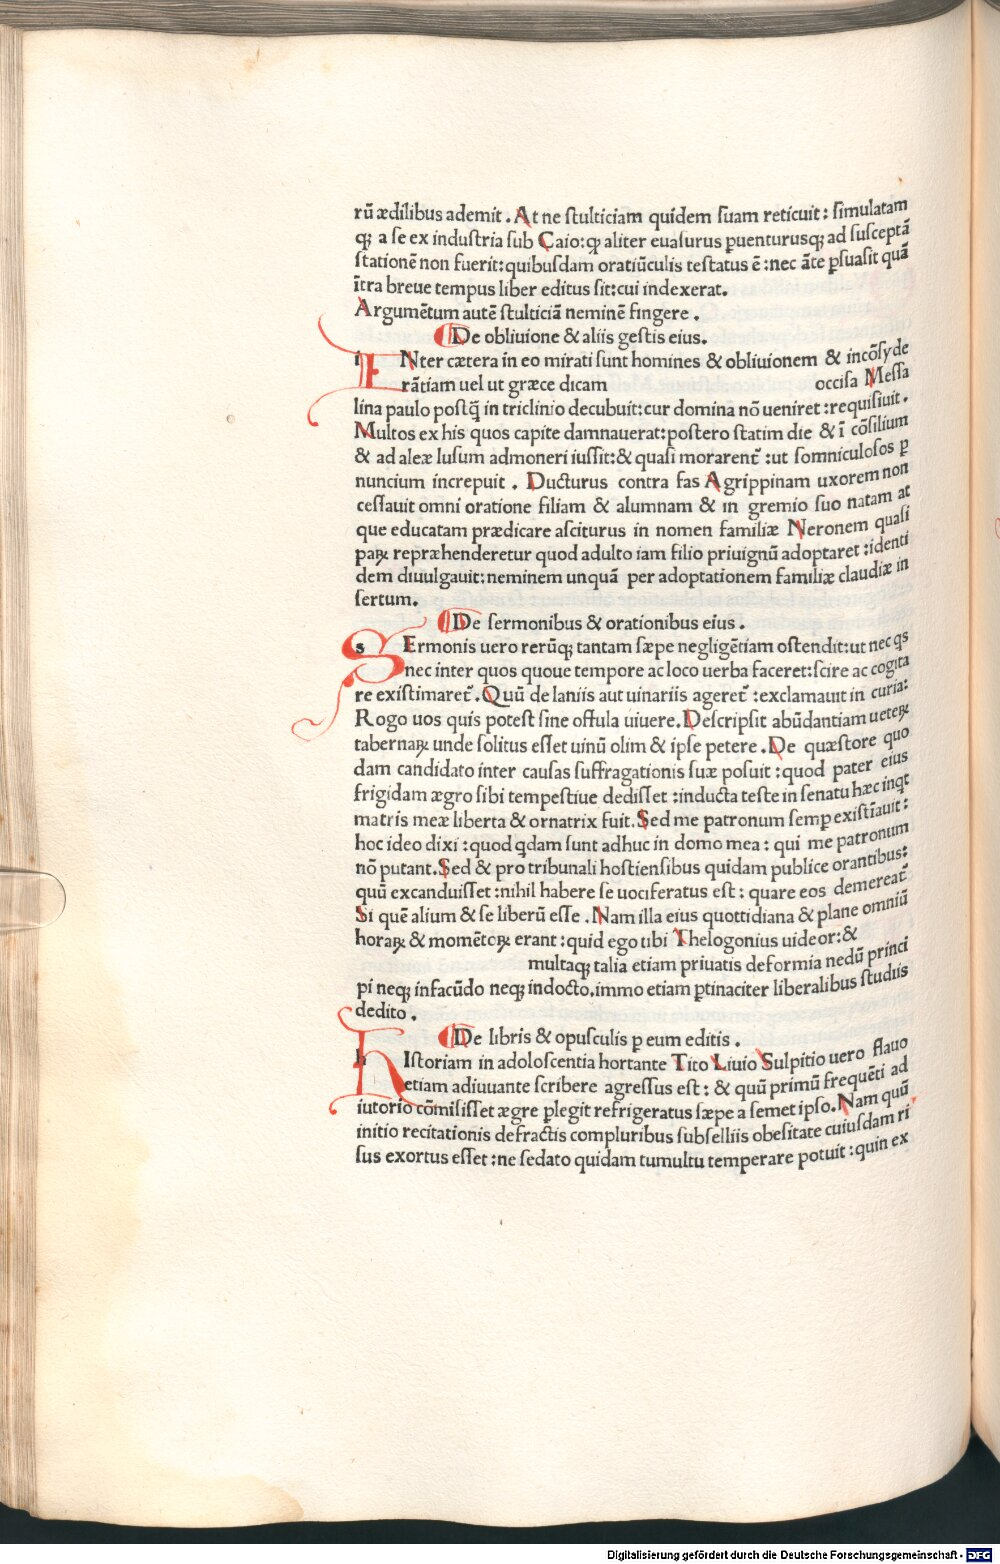 rū ædilibus ademit. At ne stulticiam quidem suam reticuit: simulatam
qꝫ a se ex industria sub Caio: ꝙ aliter euasurus ꝑuenturusqꝫ ad susceptā
stationē non fuerit: quibusdam oratiūculis testatus ē: nec āte ꝑsuasit quā
ītra breue tempus liber editus sit: cui index erat.
Argumētum autē stulticiā neminē fingere.
De obliuione & aliis gestis eius.
iNter cætera in eo mirati sunt homines & obliuionem & incōsyde
rātiam uel ut græce dicam occisa Messa
lina paulo postq̄ in triclinio decubuit: cur domina nō ueniret: requisiuit.
Multos ex his quos capite damnauerat: postero statim die & ī cōsilium
& ad aleæ lusum admoneri iussit: & quasi morarent᷑: ut somniculosos ꝑ
nuncium increpuit. Ducturus contra fas Agrippinam uxorem non
cessauit omni oratione filiam & alumnam & in gremio suo natam at
que educatam prædicare asciturus in nomen familiæ Neronem quasi
paꝝ repræhenderetur quod adulto iam filio priuignū adoptaret: identi
dem diuulgauit: neminem unquā per adoptationem familiæ claudiæ in
sertum.
De sermonibus & orationibus eius.
sErmonis uero rerūqꝫ tantam sæpe negligētiam ostendit: ut nec qs
nec inter quos quoue tempore ac loco uerba faceret: scire ac cogita
re existimaret᷑. Quū de laniis aut uinariis ageret᷑: exclamauit in curia:
Rogo uos quis potest sine offula uiuere. Descripsit abūdantiam ueteꝝ
tabernaꝝ unde solitus esset uinū olim & ipse petere. De quæstore quo
dam candidato inter causas suffragationis suæ posuit: quod pater eius
frigidam ægro sibi tempestiue dedisset: inducta teste in senatu hæc inqt
matris meæ liberta & ornatrix fuit. Sed me patronum semꝑ existīauit:
hoc ideo dixi: quod qdam sunt adhuc in domo mea: qui me patronum
nō putant. Sed & pro tribunali hostiensibus quidam publice orantibus:
quū excanduisset: nihil habere se uociferatus est: quare eos demereat᷑
Si quē alium & se liberū esse. Nam illa eius quottidiana & plane omniū
horaꝝ & momētoꝝ erant: quid ego tibi Thelogonius uideor: &
multaqꝫ talia etiam priuatis deformia nedū princi
pi neqꝫ infacūdo neqꝫ indocto, immo etiam ꝑtinaciter liberalibus studiis
dedito.
De libris & opusculis ꝑ eum editis.
hIstoriam in adoloscentia hortante Tito Liuio Sulpitio uero flauo
etiam adiuuante scribere agressus est: & quū primū frequēti ad
iutorio cōmisisset ægre ꝑlegit refrigeratus sæpe a semet ipso. Nam quū
initio recitationis defractis compluribus subselliis obesitate cuiusdam ri
sus exortus esset: ne sedato quidam tumultu temperare potuit: quin ex
Digitalisierung gefördert durch die Deutsche Forschungsgemeinschaft - DFG